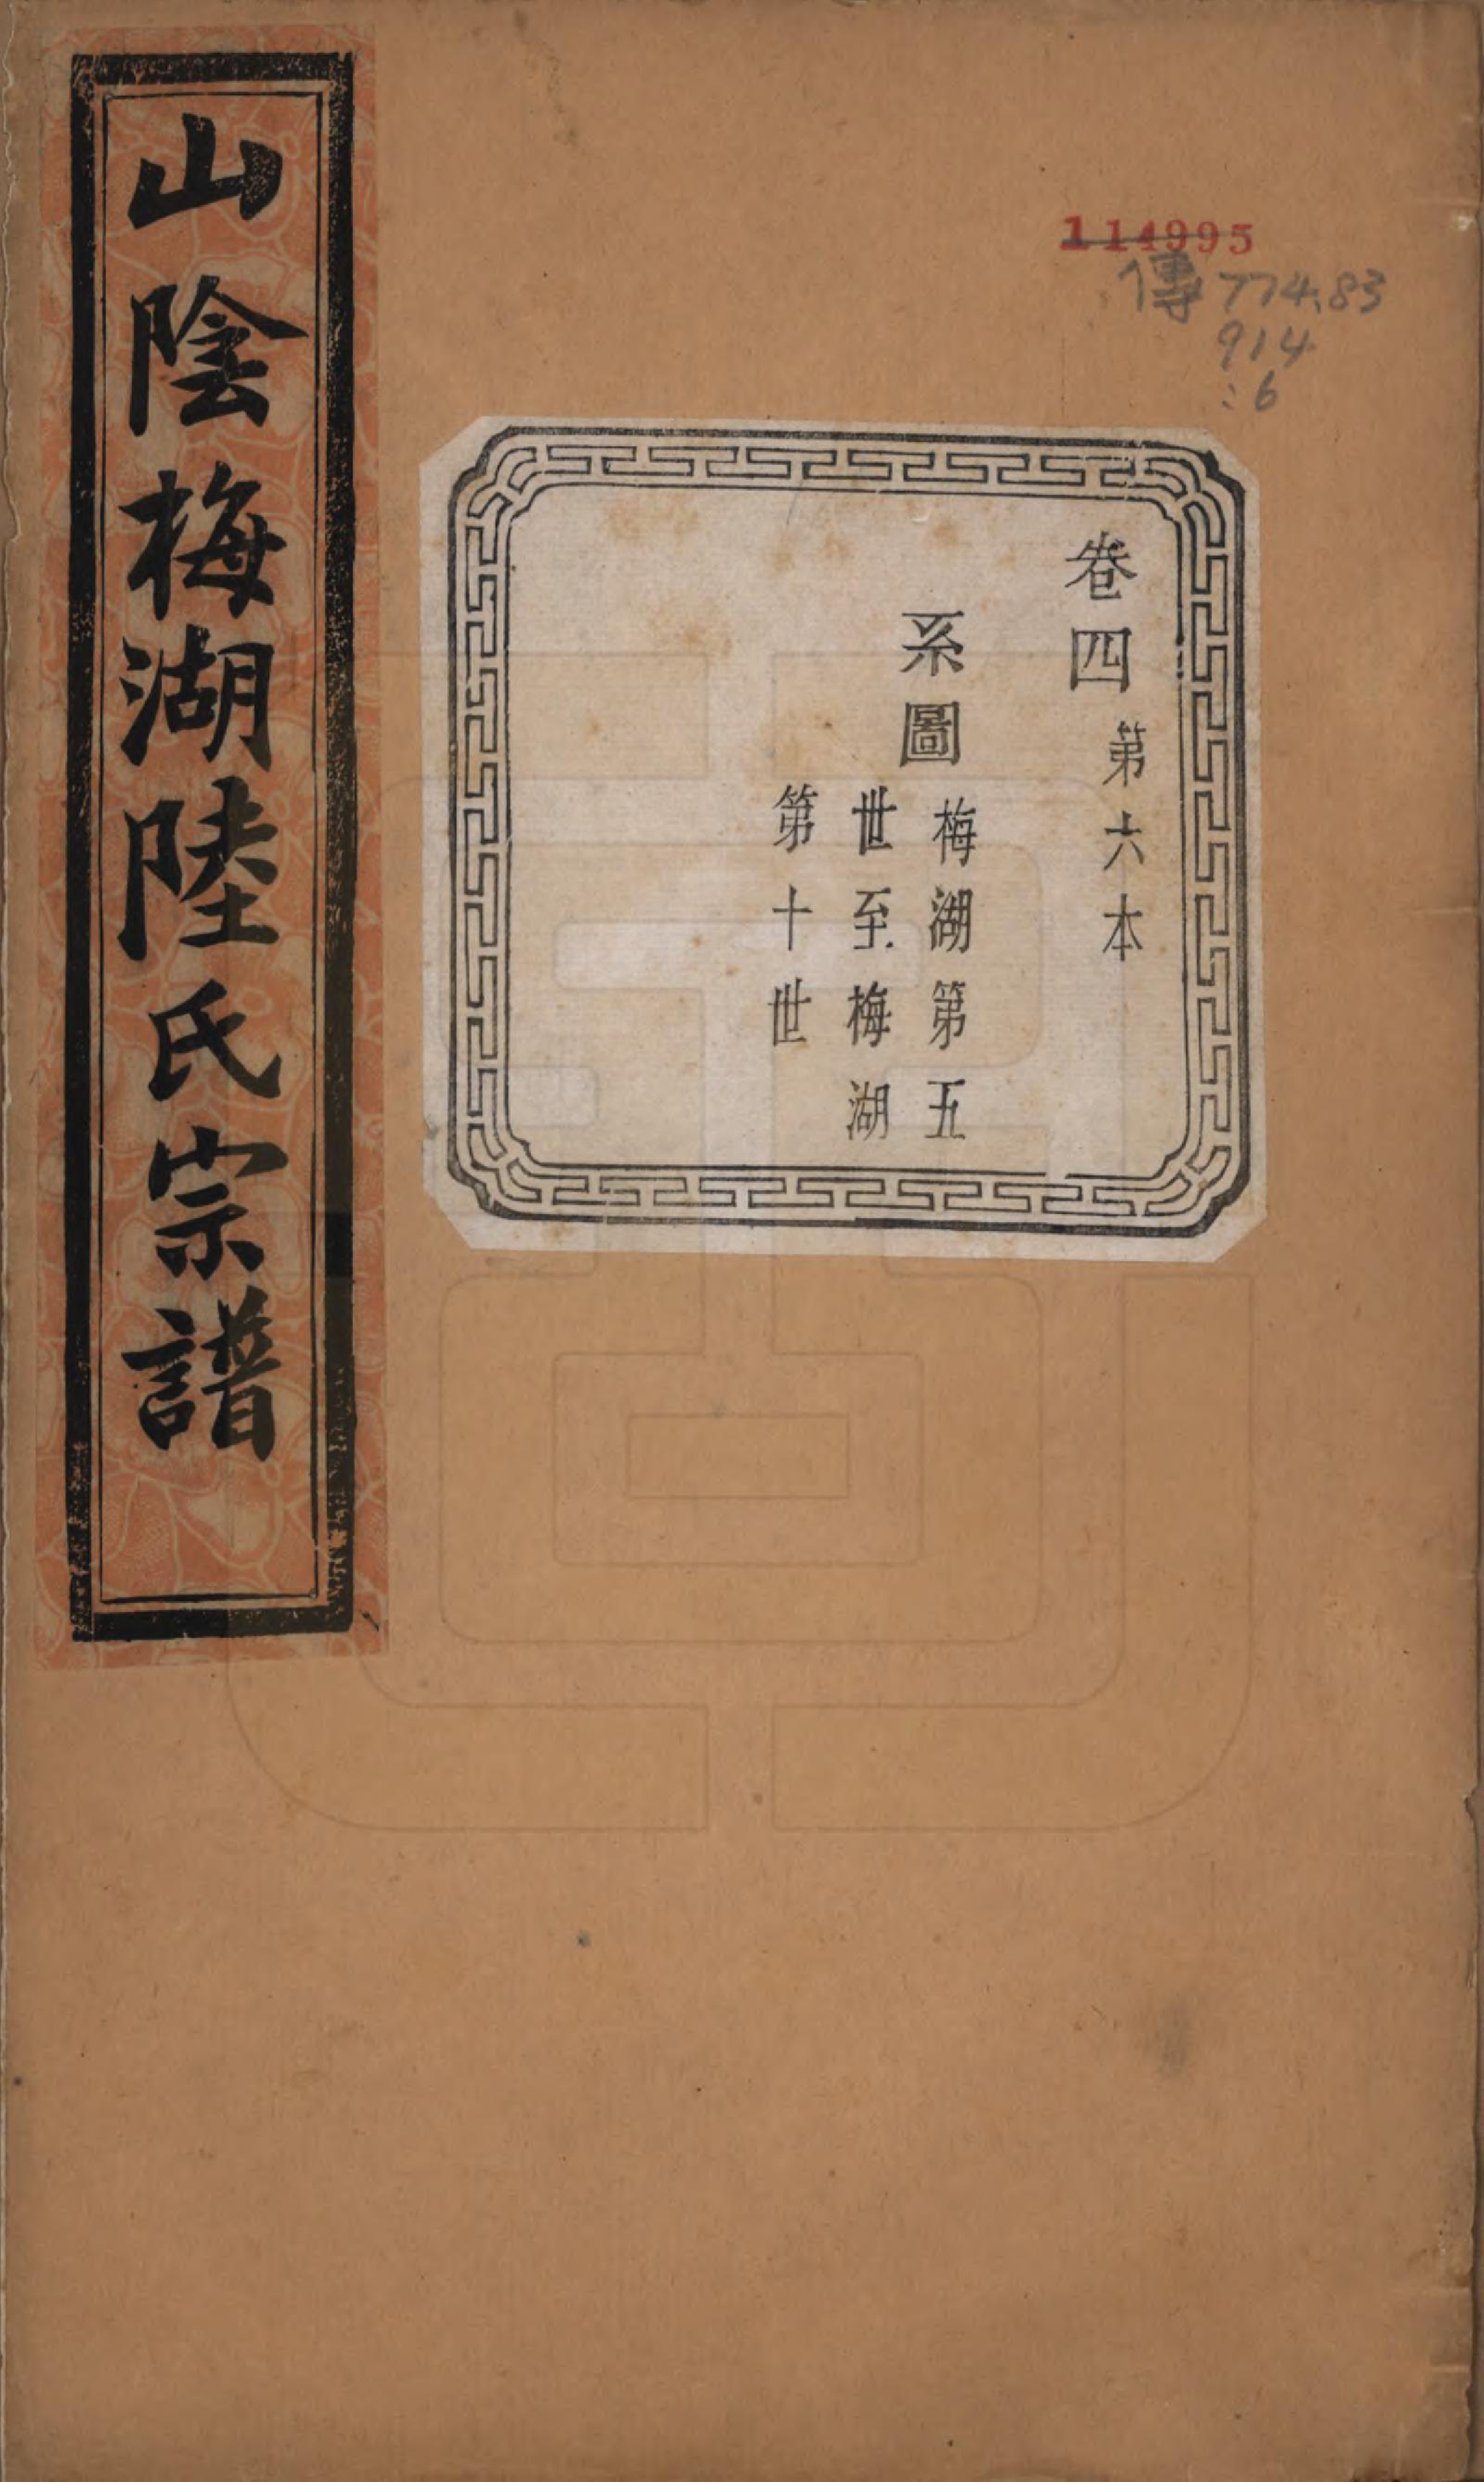 山陰梅湖陸氏宗譜
114995
傳 774.83
914
:6
卷四 第六本
系圖 梅湖第五
世至梅湖
第十世